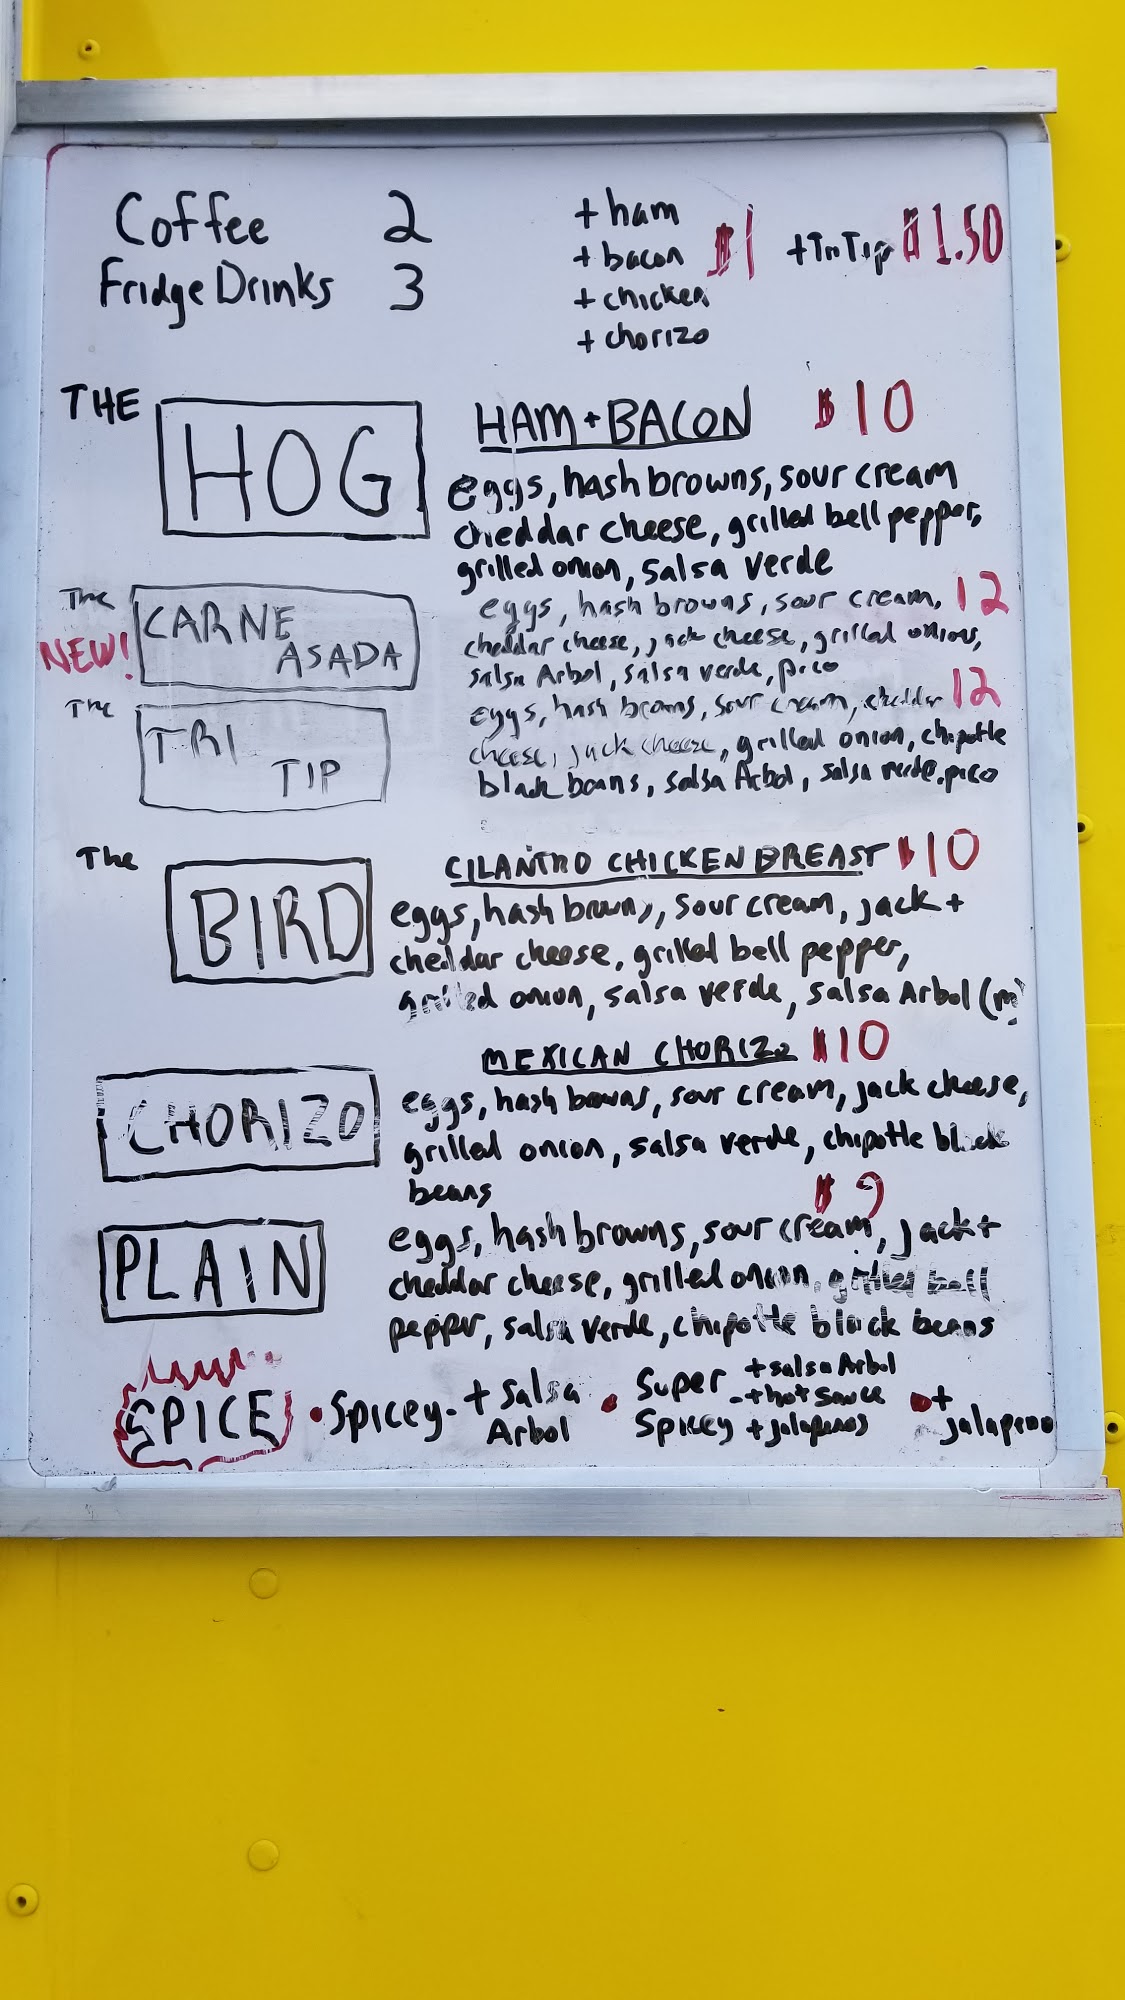 Coffee 2
Fridge Drinks 3
+ ham
+ bacon $1
+ chicken
+ chorizo
+ Tri Tip $1.50
THE HOG
HAM + BACON $10
eggs, hash browns, sour cream
cheddar cheese, grilled bell pepper,
grilled onion, salsa verde
The
NEW! CARNE
ASADA
eggs, hash browns, sour cream, 12
cheddar cheese, jack cheese, grilled onions,
salsa Arbol, salsa verde, pico
The
TRI
TIP
eggs, hash browns, sour cream, cheddar 12
cheese, jack cheese, grilled onion, chipotle
black beans, salsa Arbol, salsa verde, pico
The BIRD
CILANTRO CHICKEN BREAST $10
eggs, hash browns, sour cream, jack +
cheddar cheese, grilled bell pepper,
grilled onion, salsa verde, salsa Arbol (m)
CHORIZO
MEXICAN CHORIZO $10
eggs, hash browns, sour cream, jack cheese,
grilled onion, salsa verde, chipotle black
beans
PLAIN
$9
eggs, hash browns, sour cream, jack +
cheddar cheese, grilled onion, grilled bell
pepper, salsa verde, chipotle black beans
SPICE
• Spicey - + salsa
Arbol
• Super
Spicey
+ salsa Arbol
+ hot sauce
+ jalapenos
• +
jalapeno